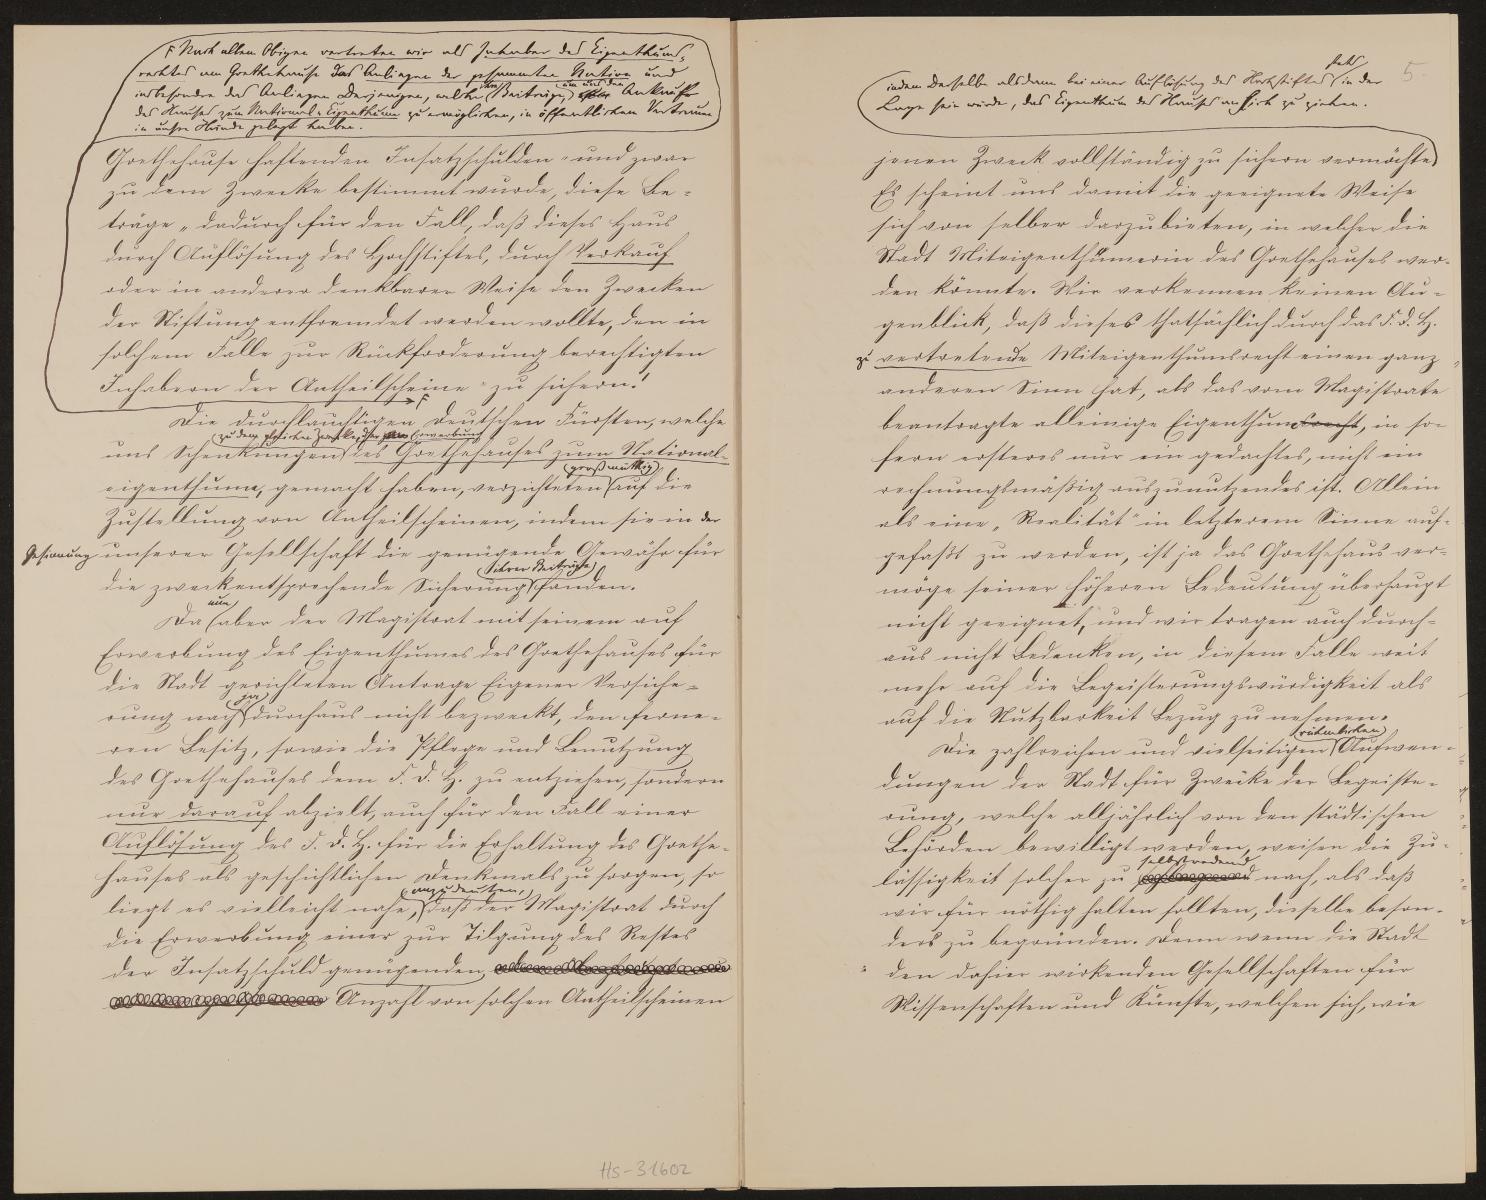 F Nach allem Obigen vertreten wir als Inhaber des Eigenthums-
rechtes am Goethehause das Anliegen der gesammten Nation und
insbesondre das Anliegen Derjenigen, welche ihre Beiträge, um uns den Ankauf
des Hauses zum National-Eigenthum zu ermöglichen, in öffentlichem Vertrauen
in unsre Hände gelegt haben.
Goethehause haftenden Insatzschulden - und zwar
zu dem Zwecke bestimmt wurde, diese Be-
träge „dadurch für den Fall, daß dieses Haus
durch Auflösung des Hochstiftes, durch Verkauf
oder in anderer denkbarer Weise den Zwecken
der Stiftung entfremdet werden wollte, den in
solchem Falle zur Rückforderung berechtigten
Inhabern der Antheilscheine" zu sichern.'
F
Die durchlauchtigen deutschen Fürsten, welche
zu dem gleichen Zwecke, der Erwerbung
uns Schenkungen des Goethehauses zum National-
großmüthig
eigenthume, gemacht haben, verzichteten auf die
Zustellung von Antheilscheinen, indem sie in der
Gesinnung unserer Gesellschaft die genügende Gewähr für
ihrer Beiträge
die zweckentsprechende Sicherung fanden.
nun
Da aber der Magistrat mit seinem auf
Erwerbung des Eigenthumes des Goethehauses für
die Stadt gerichteten Antrage Eigener Versiche-
ja
rung nach durchaus nicht bezweckt, den ferne-
ren Besitz, sowie die Pflege und Benutzung
des Goethehauses dem F. D. H. zu entziehen, sondern
nur darauf abzielt, auch für den Fall einer
Auflösung des F. D. H. für die Erhaltung des Goethe-
hauses als geschichtlichen Denkmals zu sorgen, so
anzudeuten,
liegt es vielleicht nahe, daß der Magistrat durch
die Erwerbung einer zur Tilgung des Restes
der Insatzschuld genügenden
Anzahl von solchen Antheilscheinen
Hs-31602
5
stets
indem derselbe alsdann bei einer Auflösung des Hochstiftes in der
Lage sein würde, das Eigenthum des Hauses an sich zu ziehen.
jenen Zweck vollständig zu sichern vermöchte
Es scheint uns damit die geeignete Weise
sich von selber darzubieten, in welcher die
Stadt Miteigenthümerin des Goethehauses wer-
den könnte. Wir verkennen keinen Au-
genblick, daß dieses thatsächlich durch das F. D. H.
zu vertretende Miteigenthumsrecht einen ganz
anderen Sinn hat, als das vom Magistrate
beantragte alleinige Eigenthumsrecht, in so-
fern ersteres nur ein gedachtes, nicht ein
rechnungsmäßig auszunutzendes ist. Allein
als eine „Realität" in letzterem Sinne auf-
gefaßt zu werden, ist ja das Goethehaus ver-
möge seiner höheren Bedeutung überhaupt
nicht geeignet, und wir tragen auch durch-
aus nicht Bedenken, in diesem Falle weit
mehr auf die Begeisterungswürdigkeit als
auf die Nutzbarkeit Bezug zu nehmen.
rühmlichen
Die zahlreichen und vielseitigen Aufwen-
dungen der Stadt für Zwecke der Begeiste-
rung, welche alljährlich von den städtischen
Behörden bewilligt werden, weisen die Zu-
selbstredend
lässigkeit solcher zu nach, als daß
wir für nöthig halten sollten, dieselbe beson-
ders zu begründen. Denn wenn die Stadt
den dahier wirkenden Gesellschaften für
Wissenschaften und Künste, welchen sich, wie